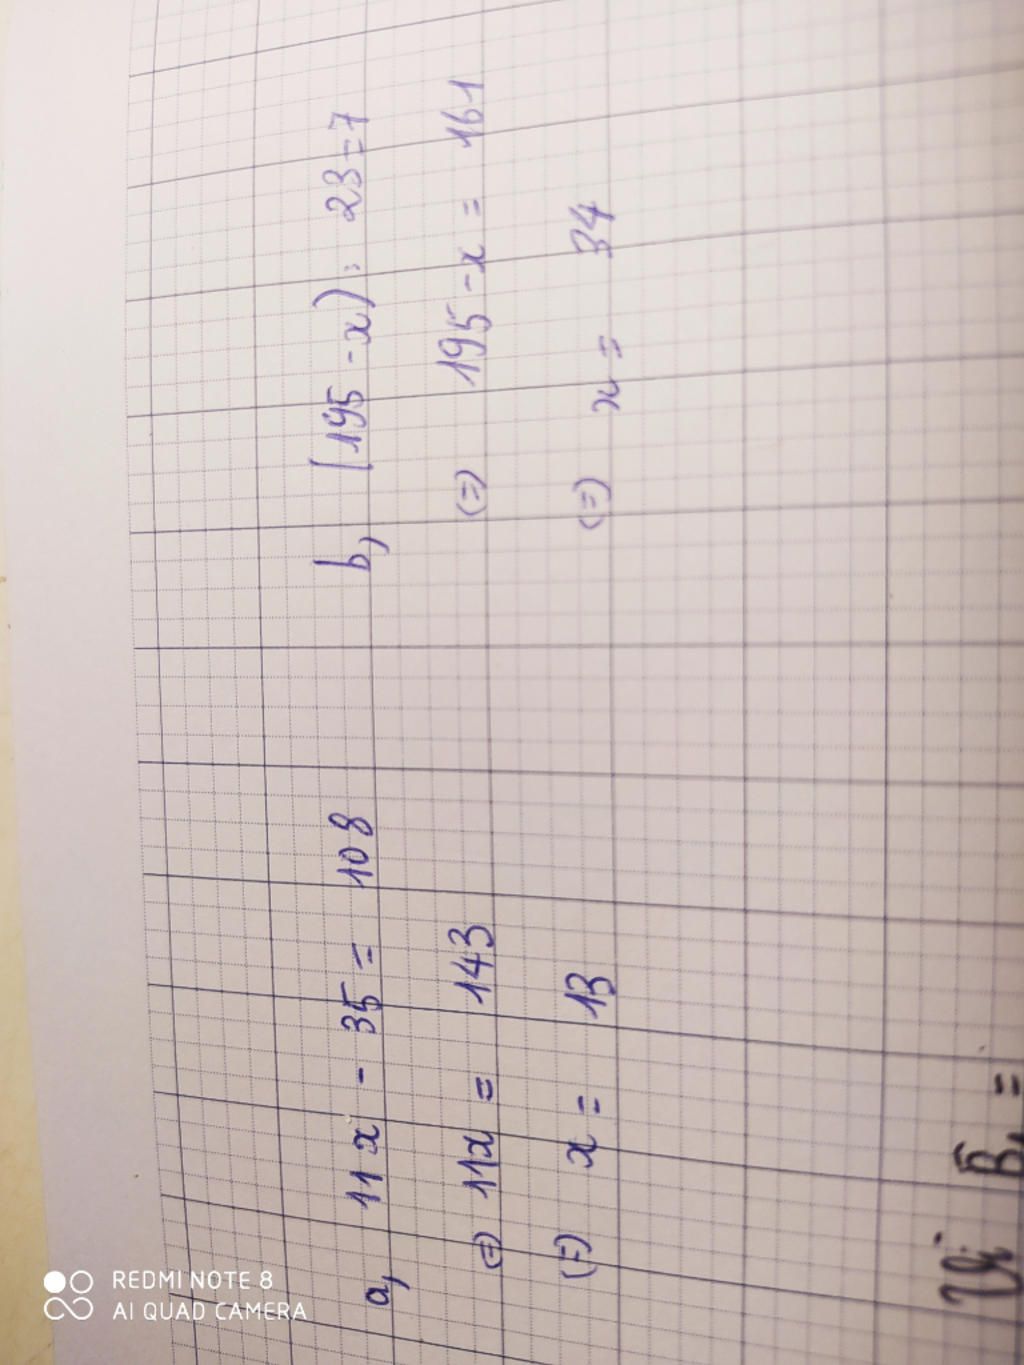 a, 11x - 35 = 108
(=) 11x = 143
(=) x = 13
b, (195 - x) : 23 = 7
(=) 195 - x = 161
(=) x = 34
REDMI NOTE 8
AI QUAD CAMERA